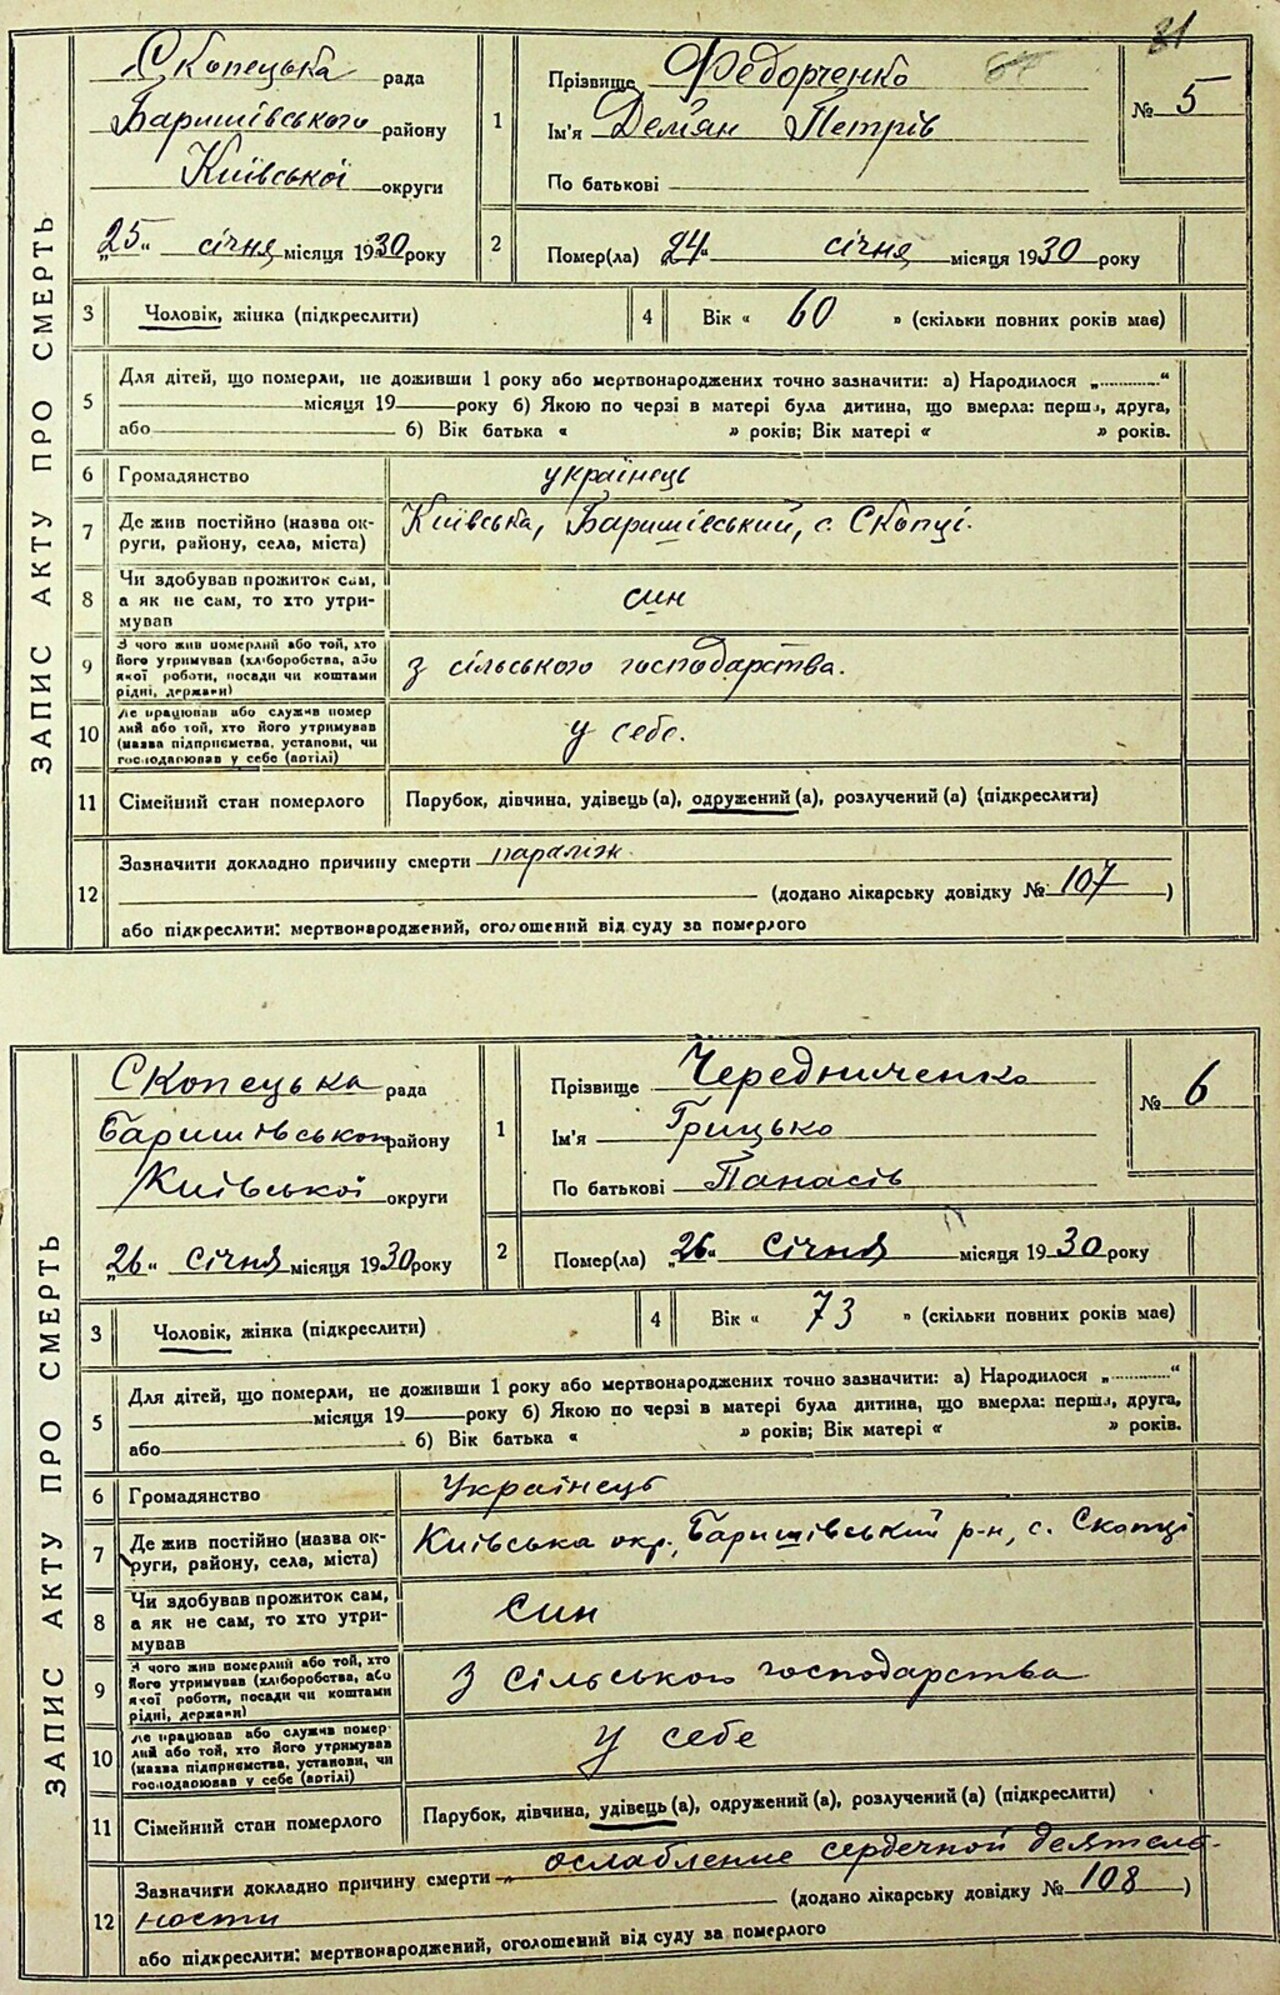 81
ЗАПИС АКТУ ПРО СМЕРТЬ
Скопецька рада
Баришівського району
Київської округи
„25“ січня місяця 1930 року
1 Прізвище Федорченко
Ім'я Дем'ян Петрів
По батькові
№ 5
2 Помер(ла) „24“ січня місяця 1930 року
3 Чоловік, жінка (підкреслити)
4 Вік « 60 » (скільки повних років має)
5 Для дітей, що померли, не доживши 1 року або мертвонароджених точно зазначити: а) Народилося „............“
місяця 19 року б) Якою по черзі в матері була дитина, що вмерла: перша, друга,
або б) Вік батька « » років; Вік матері « » років.
6 Громадянство українець
7 Де жив постійно (назва ок-
руги, району, села, міста) Київська, Баришівський, с. Скопці.
8 Чи здобував прожиток сам,
а як не сам, то хто утри-
мував син
9 З чого жив померлий або той, хто
його утримував (хліборобства, або
якої роботи, посади чи коштами
рідні, держави) з сільського господарства.
10 Де працював або служив помер
лий або той, хто його утримував
(назва підприємства, установи, чи
господарював у себе (артілі) у себе.
11 Сімейний стан померлого Парубок, дівчина, удівець (а), одружений (а), розлучений (а) (підкреслити)
12 Зазначити докладно причину смерти параліж
(додано лікарську довідку № 107)
або підкреслити: мертвонароджений, оголошений від суду за померлого
ЗАПИС АКТУ ПРО СМЕРТЬ
Скопецька рада
Баришівського району
Київської округи
„26“ січня місяця 1930 року
1 Прізвище Чередниченко
Ім'я Грицько
По батькові Панасів
№ 6
2 Помер(ла) „26“ січня місяця 1930 року
3 Чоловік, жінка (підкреслити)
4 Вік « 73 » (скільки повних років має)
5 Для дітей, що померли, не доживши 1 року або мертвонароджених точно зазначити: а) Народилося „............“
місяця 19 року б) Якою по черзі в матері була дитина, що вмерла: перша, друга,
або б) Вік батька « » років; Вік матері « » років.
6 Громадянство Українець
7 Де жив постійно (назва ок-
руги, району, села, міста) Київська окр., Баришівський р-н, с. Скопці
8 Чи здобував прожиток сам,
а як не сам, то хто утри-
мував син
9 З чого жив померлий або той, хто
його утримував (хліборобства, або
якої роботи, посади чи коштами
рідні, держави) З сільського господарства
10 Де працював або служив помер-
лий або той, хто його утримував
(назва підприємства, установи, чи
господарював у себе (артілі) у себе
11 Сімейний стан померлого Парубок, дівчина, удівець (а), одружений (а), розлучений (а) (підкреслити)
12 Зазначити докладно причину смерти ослабление сердечной деятель-
ности (додано лікарську довідку № 108)
або підкреслити: мертвонароджений, оголошений від суду за померлого